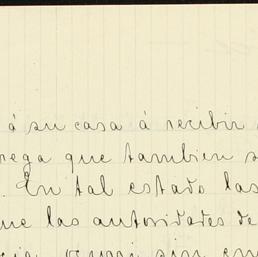 á su casa á recibir
rega que tambien s
. En tal estado las
ue las autoridades de
sin em